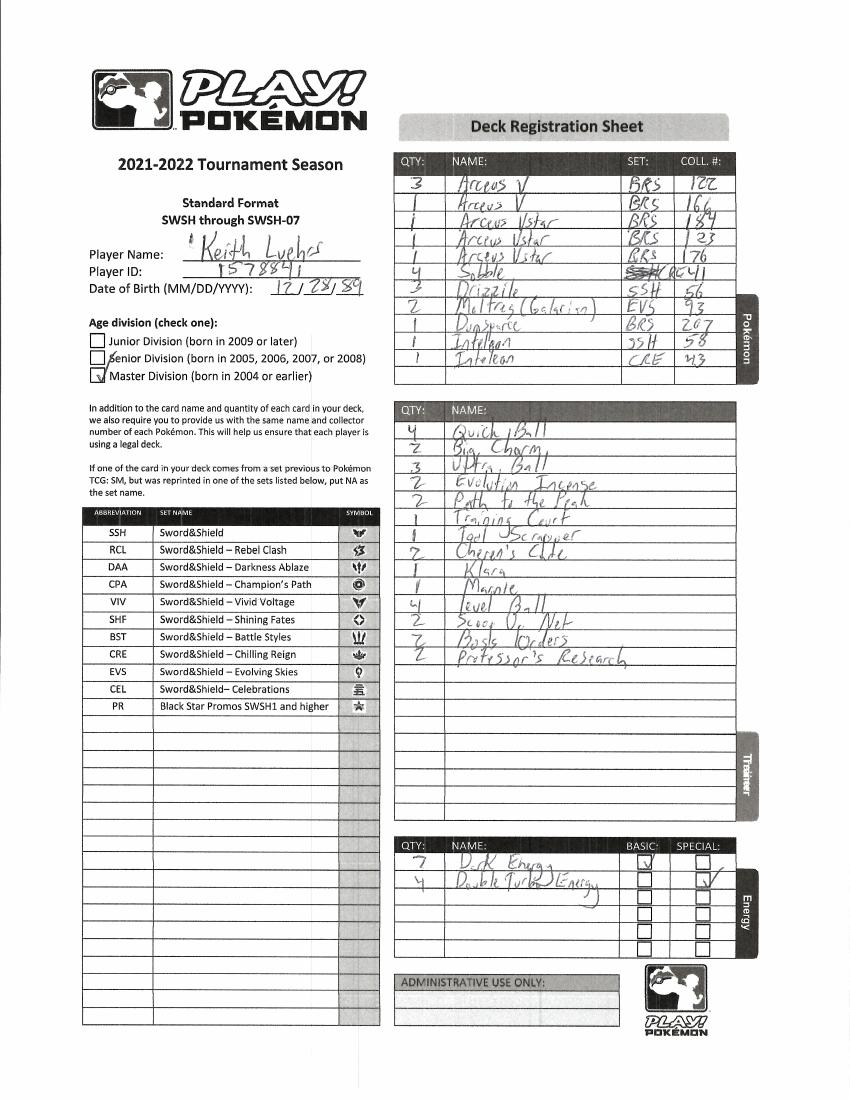 PLAY!
POKÉMON
2021-2022 Tournament Season
Standard Format
SWSH through SWSH-07
Player Name: Keith Luehrs
Player ID: 1578841
Date of Birth (MM/DD/YYYY): 12/28/89
Age division (check one):
Junior Division (born in 2009 or later)
Senior Division (born in 2005, 2006, 2007, or 2008)
Master Division (born in 2004 or earlier)
In addition to the card name and quantity of each card in your deck,
we also require you to provide us with the same name and collector
number of each Pokémon. This will help us ensure that each player is
using a legal deck.
If one of the card in your deck comes from a set previous to Pokémon
TCG: SM, but was reprinted in one of the sets listed below, put NA as
the set name.
ABBREVIATION SET NAME SYMBOL
SSH Sword&Shield
RCL Sword&Shield – Rebel Clash
DAA Sword&Shield – Darkness Ablaze
CPA Sword&Shield – Champion's Path
VIV Sword&Shield – Vivid Voltage
SHF Sword&Shield – Shining Fates
BST Sword&Shield – Battle Styles
CRE Sword&Shield – Chilling Reign
EVS Sword&Shield – Evolving Skies
CEL Sword&Shield– Celebrations
PR Black Star Promos SWSH1 and higher
Deck Registration Sheet
QTY: NAME: SET: COLL. #:
3 Arceus V BRS 122
1 Arceus V BRS 166
1 Arceus Vstar BRS 184
1 Arceus Vstar BRS 123
1 Arceus Vstar BRS 176
4 Sobble CRE 41
3 Drizzile SSH 56
2 Moltres (Galarian) EVS 93
1 Dunsparce BRS 207
1 Inteleon SSH 58
1 Inteleon CRE 43
Pokémon
QTY: NAME:
4 Quick Ball
2 Big Charm
3 Ultra Ball
2 Evolution Incense
2 Path to the Peak
1 Training Court
1 Tool Scrapper
2 Cheren's Care
1 Klara
1 Marnie
4 Level Ball
2 Scoop Up Net
2 Boss's Orders
2 Professor's Research
Trainer
QTY: NAME: BASIC: SPECIAL:
7 Dark Energy
4 Double Turbo Energy
Energy
ADMINISTRATIVE USE ONLY:
PLAY!
POKÉMON